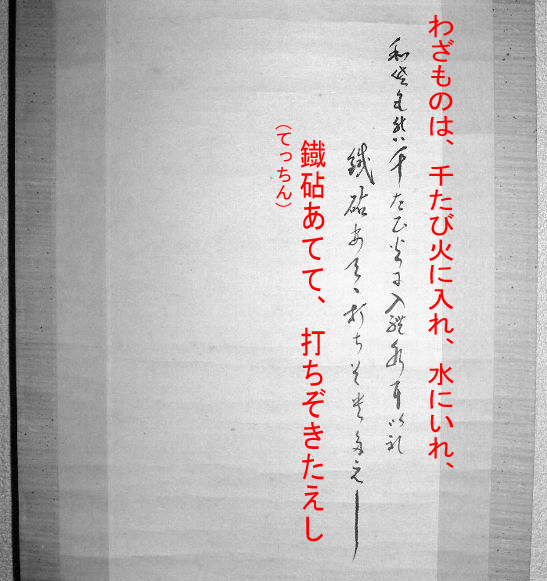 わざものは、千たび火に入れ、水にいれ、
和毛能八千たひ火尓入禮水耳以礼
鐵砧あてゝ打ちそき多えし
鐵砧あてて、打ちぞきたえし
（てっちん）